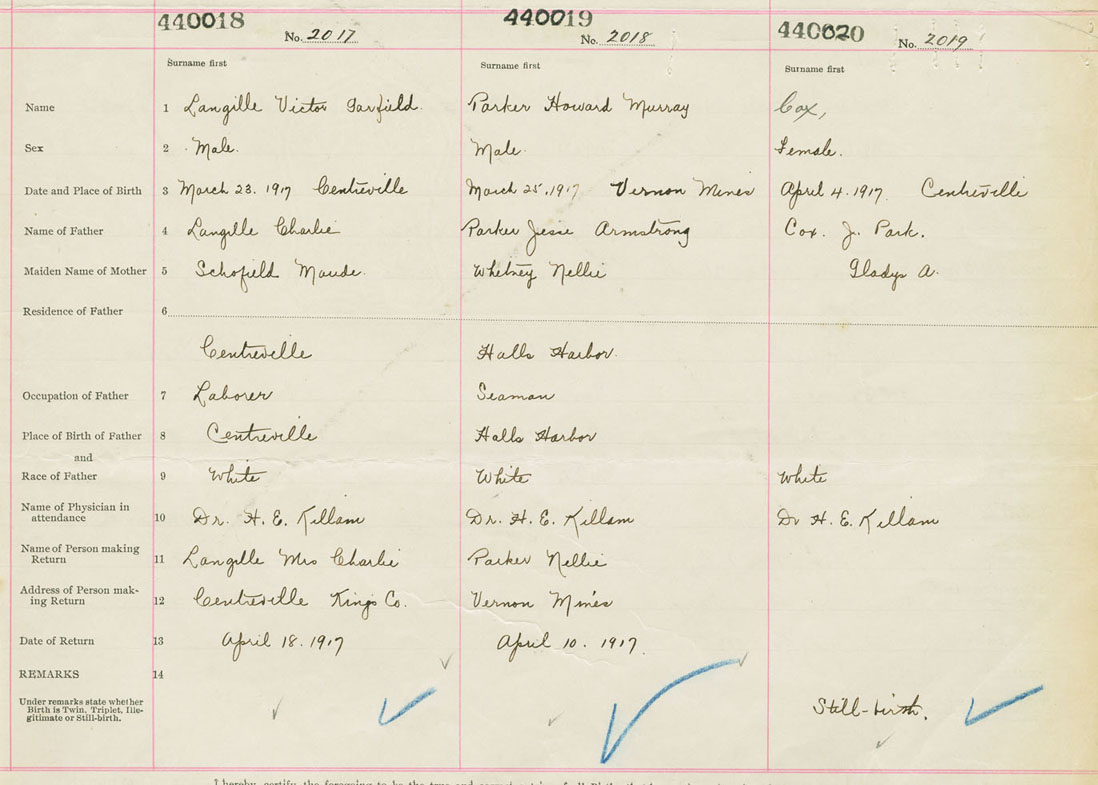 440018 440019 440020
No. 2017 No. 2018 No. 2019
Surname first Surname first Surname first
Name 1 Langille Victor Garfield. Parker Howard Murray Cox,
Sex 2 Male. Male. Female.
Date and Place of Birth 3 March 23. 1917 Centreville March 25, 1917 Vernon Mines April 4. 1917. Centreville
Name of Father 4 Langille Charlie Parker Jesse Armstrong Cox. J. Park.
Maiden Name of Mother 5 Schofield Maude. Whitney Nellie Gladys A.
Residence of Father 6
Centreville Halls Harbor.
Occupation of Father 7 Laborer Seaman
Place of Birth of Father 8 Centreville Halls Harbor
and
Race of Father 9 White White White
Name of Physician in
attendance 10 Dr. H. E. Killam Dr. H. E. Killam Dr H. E. Killam
Name of Person making
Return 11 Langille Mrs Charlie Parker Nellie
Address of Person mak-
ing Return 12 Centreville Kings Co. Vernon Mines
Date of Return 13 April 18. 1917 April 10. 1917.
REMARKS 14
Under remarks state whether
Birth is Twin, Triplet, Ille-
gitimate or Still-birth. Still-birth.
I hereby certify the foregoing to be the true and